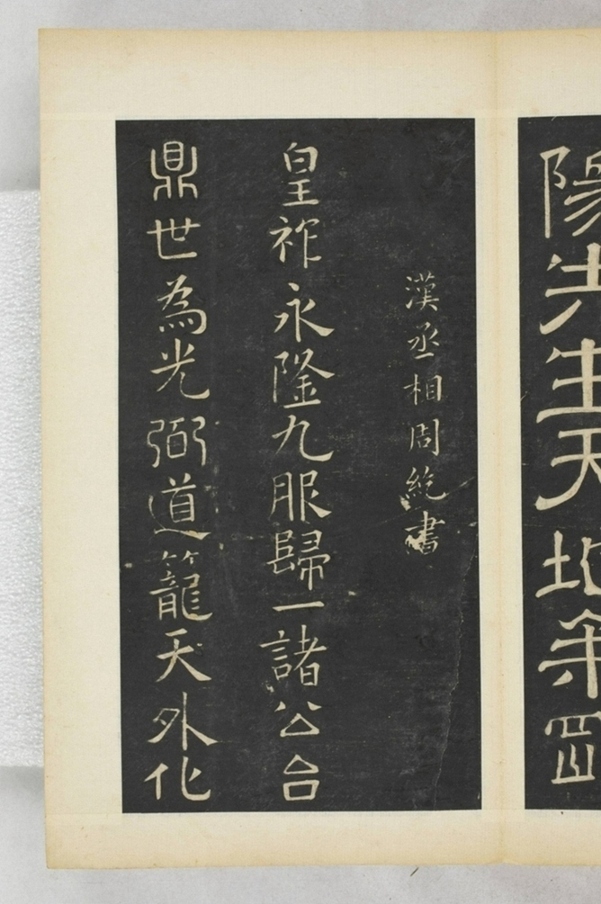 陽先生天地余四
漢丞相周紇書
皇祚永隆九服歸一諸公台
鼎世為光弼道籠天外化